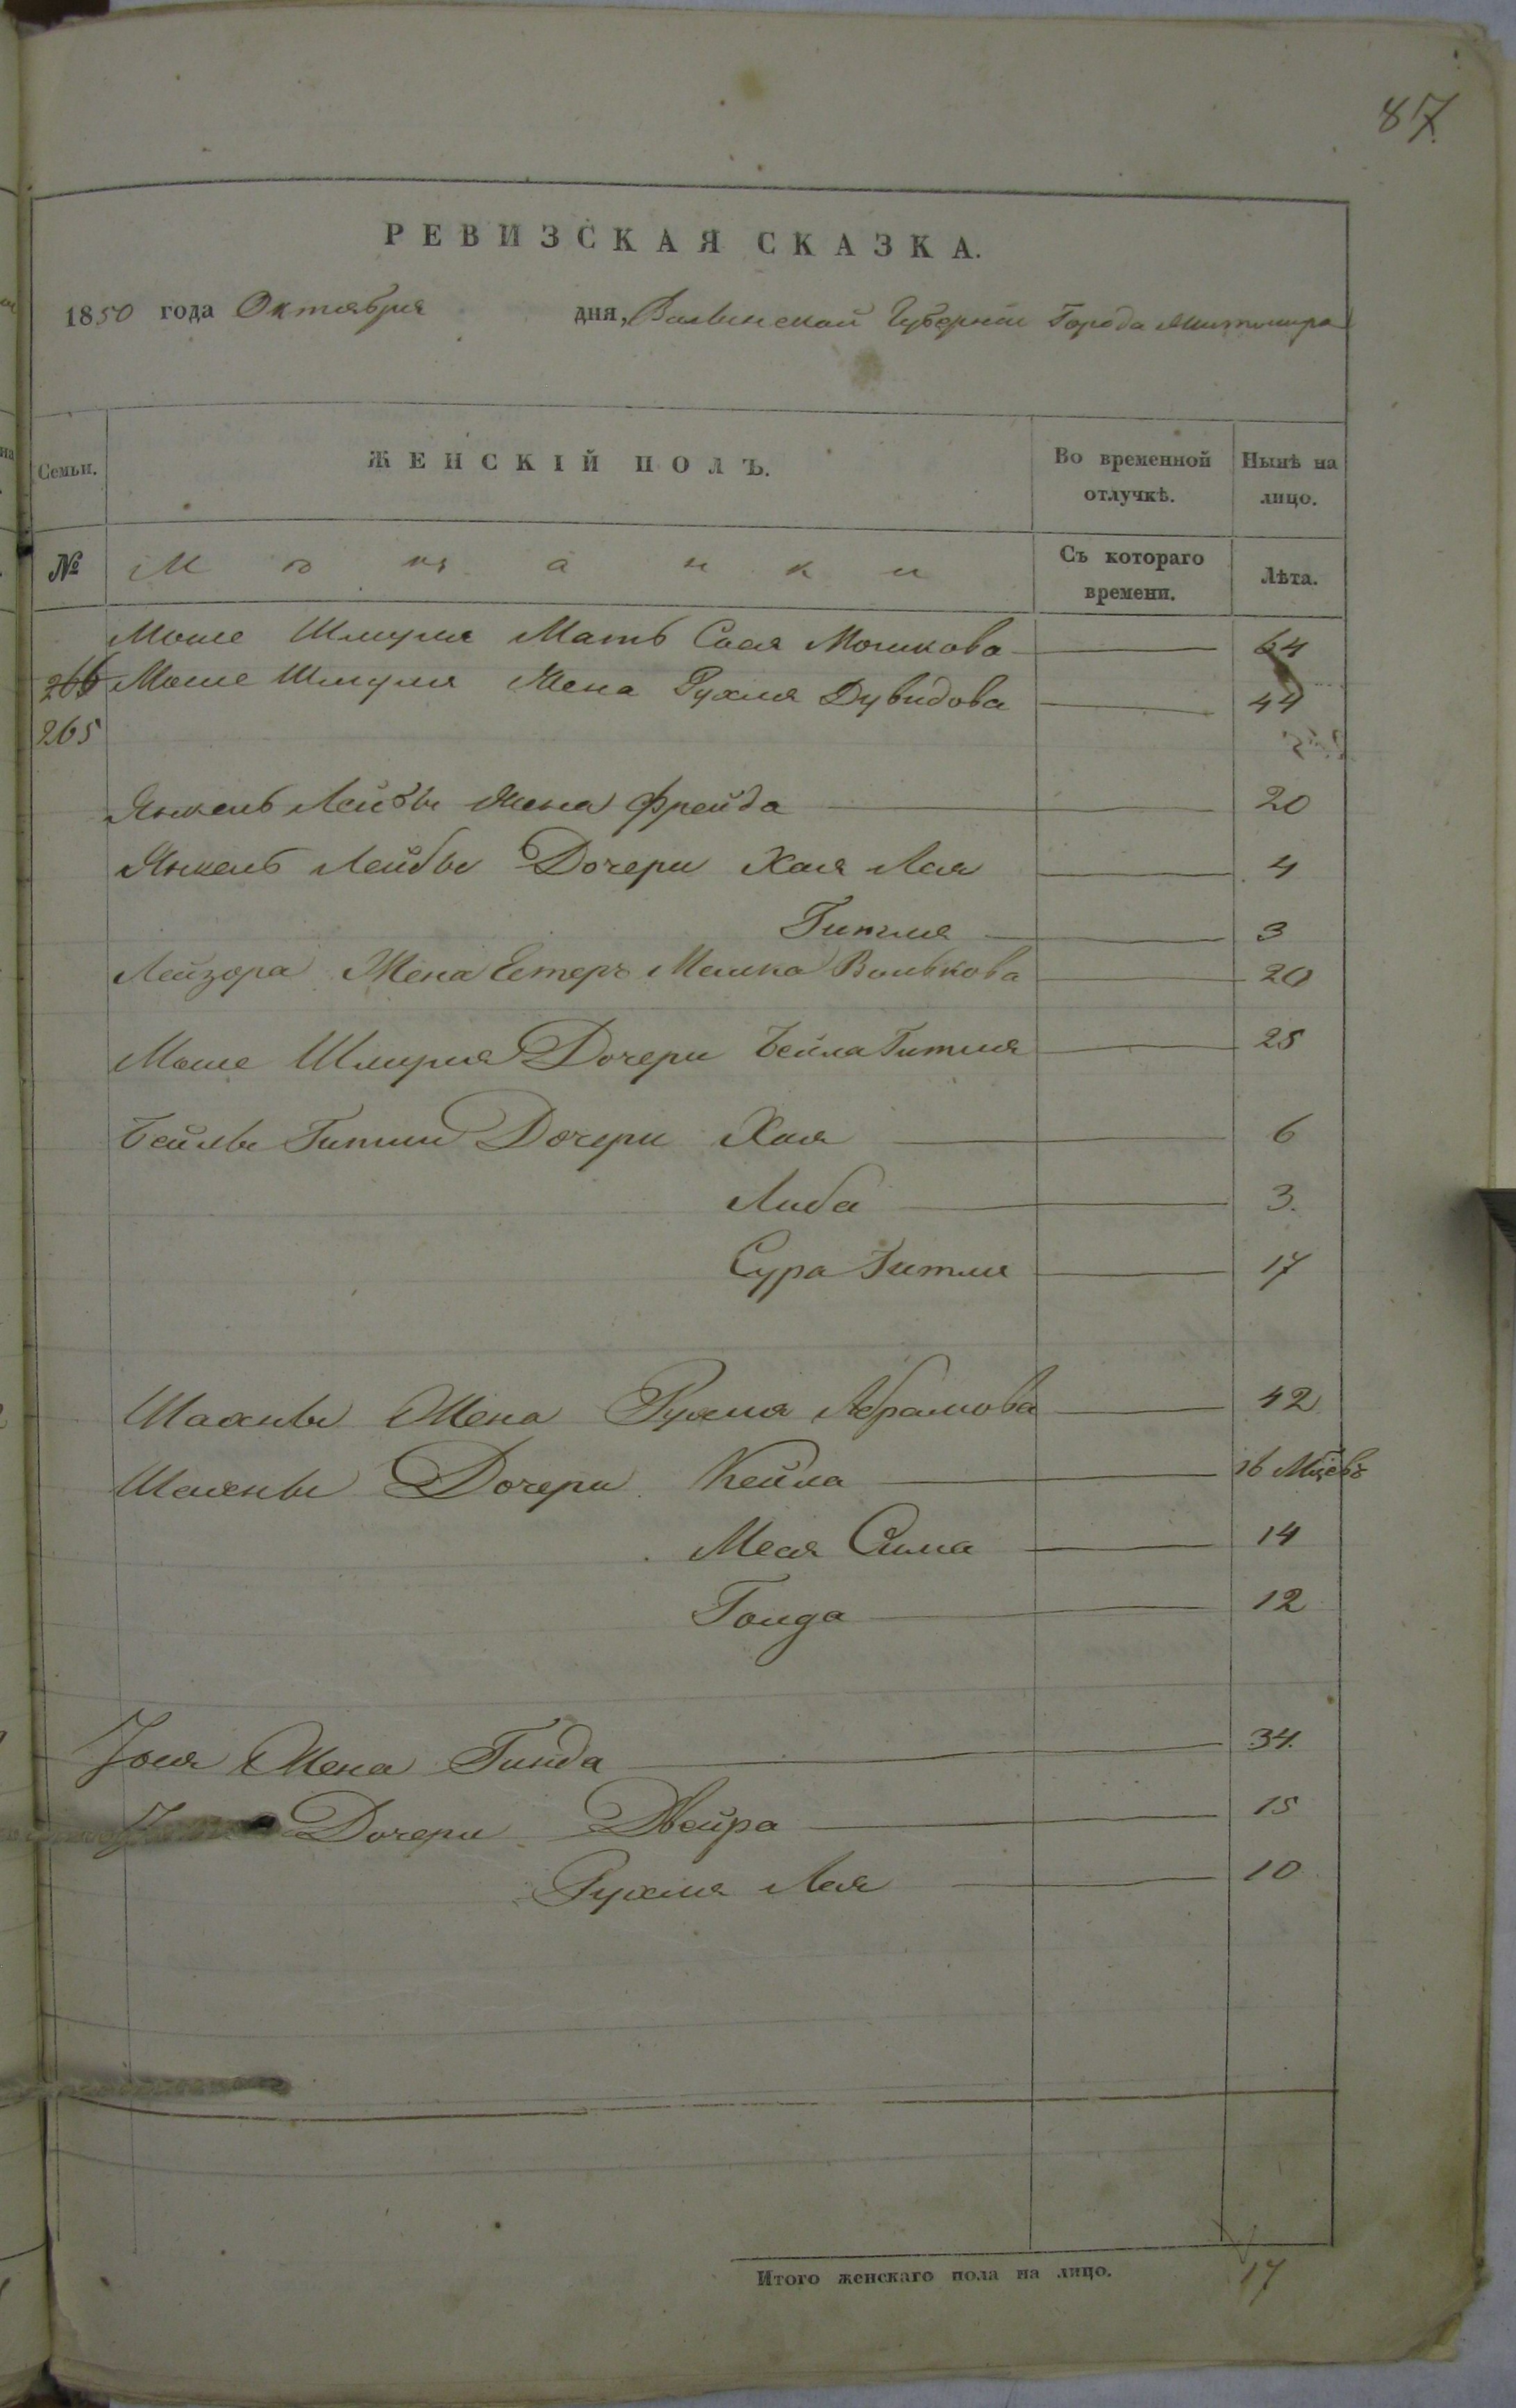 87
РЕВИЗСКАЯ СКАЗКА.
1850 года Октября дня, Волынской Губернии Города Житомира
Семьи. ЖЕНСКІЙ ПОЛЪ. Во временной отлучкѣ. Нынѣ на лицо.
№ Мѣщанки Съ котораго времени. Лѣта.
Мошe Шмуля Мать Сося Мошкова 64
266 Моше Шмуля Жена Рухля Дувидова 44
265
Янкель Лейбы Жена Фрейда 20
Янкель Лейбы Дочери Хая Лея 4
Гитля 3
Лейзора Жена Естеръ Малка Волькова 20
Моше Шмуля Дочери Бейла Гитля 25
Бейлы Гитли Дочери Хая 6
Либа 3.
Сура Гитля 17
Шахны Жена Рухля Абрамова 42
Шахны Дочери Кейла 16 Мцевъ
Мея Сима 14
Голда 12
Жена Гинда 34.
Дочери Двейра 15
Рухля Лея 10
Итого женскаго пола на лицо. 17